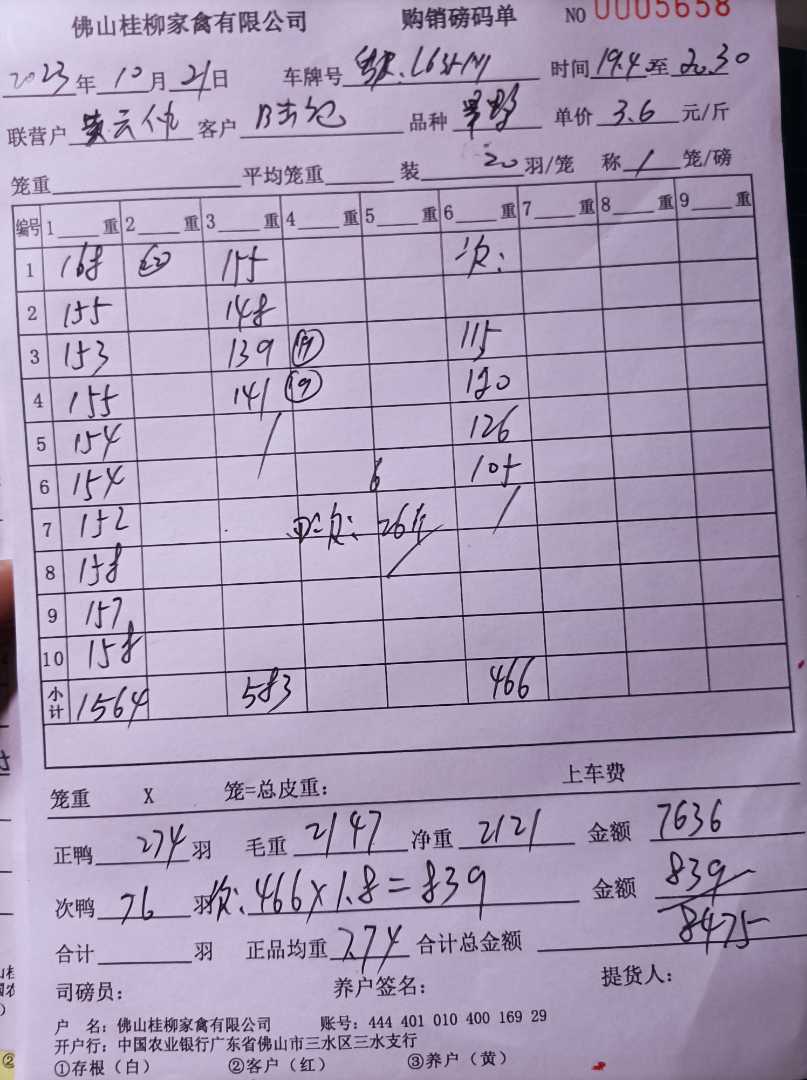 佛山桂柳家禽有限公司 购销磅码单 NO 0005658
2023年 10月 21日 车牌号 时间 19.4 至 20.30
联营户 黄云 客户 品种 单价 3.6 元/斤
笼重 平均笼重 装 20 羽/笼 称 1 笼/磅
编号 1 重 2 重 3 重 4 重 5 重 6 重 7 重 8 重 9 重
1 168 20 155 次:
2 155 148
3 153 139 19 115
4 155 141 19 120
5 154 / 126
6 154 6 105
7 152 次: 26斤 /
8 158
9 157
10 158
小计 1564 583 466
笼重 X 笼=总皮重: 上车费
正鸭 274 羽 毛重 2147 净重 2121 金额 7636
次鸭 76 羽 次: 466×1.8=839 金额 839
合计 羽 正品均重 7.74 合计总金额 8475
司磅员: 养户签名: 提货人:
户 名: 佛山桂柳家禽有限公司 账号: 444 401 010 400 169 29
开户行: 中国农业银行广东省佛山市三水区三水支行
①存根（白） ②客户（红） ③养户（黄）